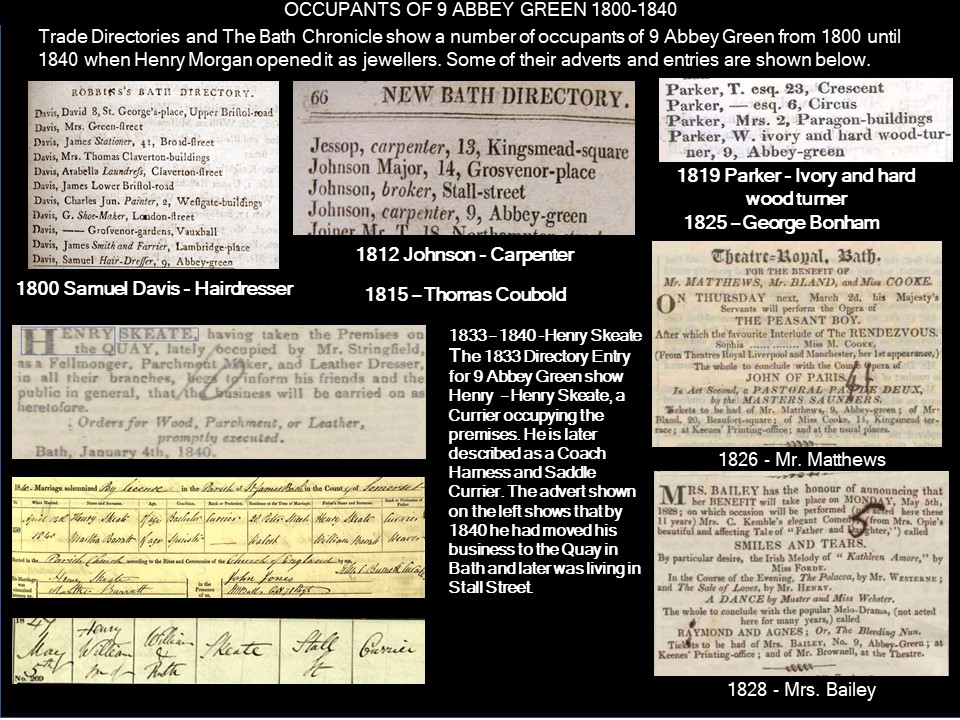 OCCUPANTS OF 9 ABBEY GREEN 1800-1840
Trade Directories and The Bath Chronicle show a number of occupants of 9 Abbey Green from 1800 until
1840 when Henry Morgan opened it as jewellers. Some of their adverts and entries are shown below.
ROBBINS'S BATH DIRECTORY.
Davis, David 8, St. George's-place, Upper Bristol-road
Davis, Mrs. Green-street
Davis, James Stationer, 41, Broad-street
Davis, Mrs. Thomas Claverton-buildings
Davis, Arabella Laundress, Claverton-street
Davis, James Lower Bristol-road
Davis, Charles Jun. Painter, 2, Westgate-buildings
Davis, G. Shoe-Maker, London-street
Davis, —— Grosvenor-gardens, Vauxhall
Davis, James Smith and Farrier, Lambridge-place
Davis, Samuel Hair-Dresser, 9, Abbey-green
1800 Samuel Davis - Hairdresser
66 NEW BATH DIRECTORY.
Jessop, carpenter, 13, Kingsmead-square
Johnson Major, 14, Grosvenor-place
Johnson, broker, Stall-street
Johnson, carpenter, 9, Abbey-green
Joiner Mr. T. 18, Northampton-street
1812 Johnson - Carpenter
1815 – Thomas Coubold
Parker, T. esq. 23, Crescent
Parker, — esq. 6, Circus
Parker, Mrs. 2, Paragon-buildings
Parker, W. ivory and hard wood-tur-
ner, 9, Abbey-green
1819 Parker - Ivory and hard
wood turner
1825 – George Bonham
Theatre-Royal, Bath.
FOR THE BENEFIT OF
Mr. MATTHEWS, Mr. BLAND, and Miss COOKE.
ON THURSDAY next, March 2d, his Majesty's
Servants will perform the Opera of
THE PEASANT BOY.
After which the favourite Interlude of The RENDEZVOUS.
Sophia ........ Miss M. COOKE,
(From Theatres Royal Liverpool and Manchester, her 1st appearance,)
The whole to conclude with the Comic Opera of
JOHN OF PARIS.
In Act Second, a PASTORAL PAS DE DEUX,
by the MASTERS SAUNDERS.
Tickets to be had of Mr. Matthews, 9, Abbey-green; of Mr.
Bland, 20, Beaufort-square; of Miss Cooke, 14, Kingsmead ter-
race; at Keenes' Printing-office; and at the usual places.
1826 - Mr. Matthews
HENRY SKEATE, having taken the Premises on
the QUAY, lately occupied by Mr. Stringfield,
as a Fellmonger, Parchment Maker, and Leather Dresser,
in all their branches, begs to inform his friends and the
public in general, that the business will be carried on as
heretofore.
Orders for Wood, Parchment, or Leather,
promptly executed.
Bath, January 4th, 1840.
1833 – 1840 -Henry Skeate
The 1833 Directory Entry
for 9 Abbey Green show
Henry – Henry Skeate, a
Currier occupying the
premises. He is later
described as a Coach
Harness and Saddle
Currier. The advert shown
on the left shows that by
1840 he had moved his
business to the Quay in
Bath and later was living in
Stall Street.
MRS. BAILEY has the honour of announcing that
her BENEFIT will take place on MONDAY, May 5th,
1828; on which occasion will be performed (not acted here these
11 years) Mrs. C. Kemble's elegant Comedy (from Mrs. Opie's
beautiful and affecting Tale of "Father and Daughter,") called
SMILES AND TEARS.
By particular desire, the Irish Melody of "Kathleen Amore," by
Miss FORDE.
In the Course of the Evening, The Polacca, by Mr. WESTERNE;
and The Sale of Loves, by Mr. HENRY.
A DANCE by Master and Miss Webster.
The whole to conclude with the popular Melo-Drama, (not acted
here for many years,) called
RAYMOND AND AGNES; Or, The Bleeding Nun.
Tickets to be had of Mrs. BAILEY, No. 9, Abbey-Green; at
Keenes' Printing-office; and of Mr. Brownell, at the Theatre.
1828 - Mrs. Bailey
1840. Marriage solemnized By License in the Parish of St James Bath in the County of Somerset
Henry Skeate Bachelor Currier Henry Skeate Currier
1840 Martha Barrett Spinster Walcot William Barrett Weaver
Parish Church according to the Rites and Ceremonies of the Church of England by me,
Henry Skeate
Martha Barrett
in the Presence of us,
John Jones
1847
May
5th
No. 269
Henry
William
William
&
Ruth
Skeate
Stall
St
Currier